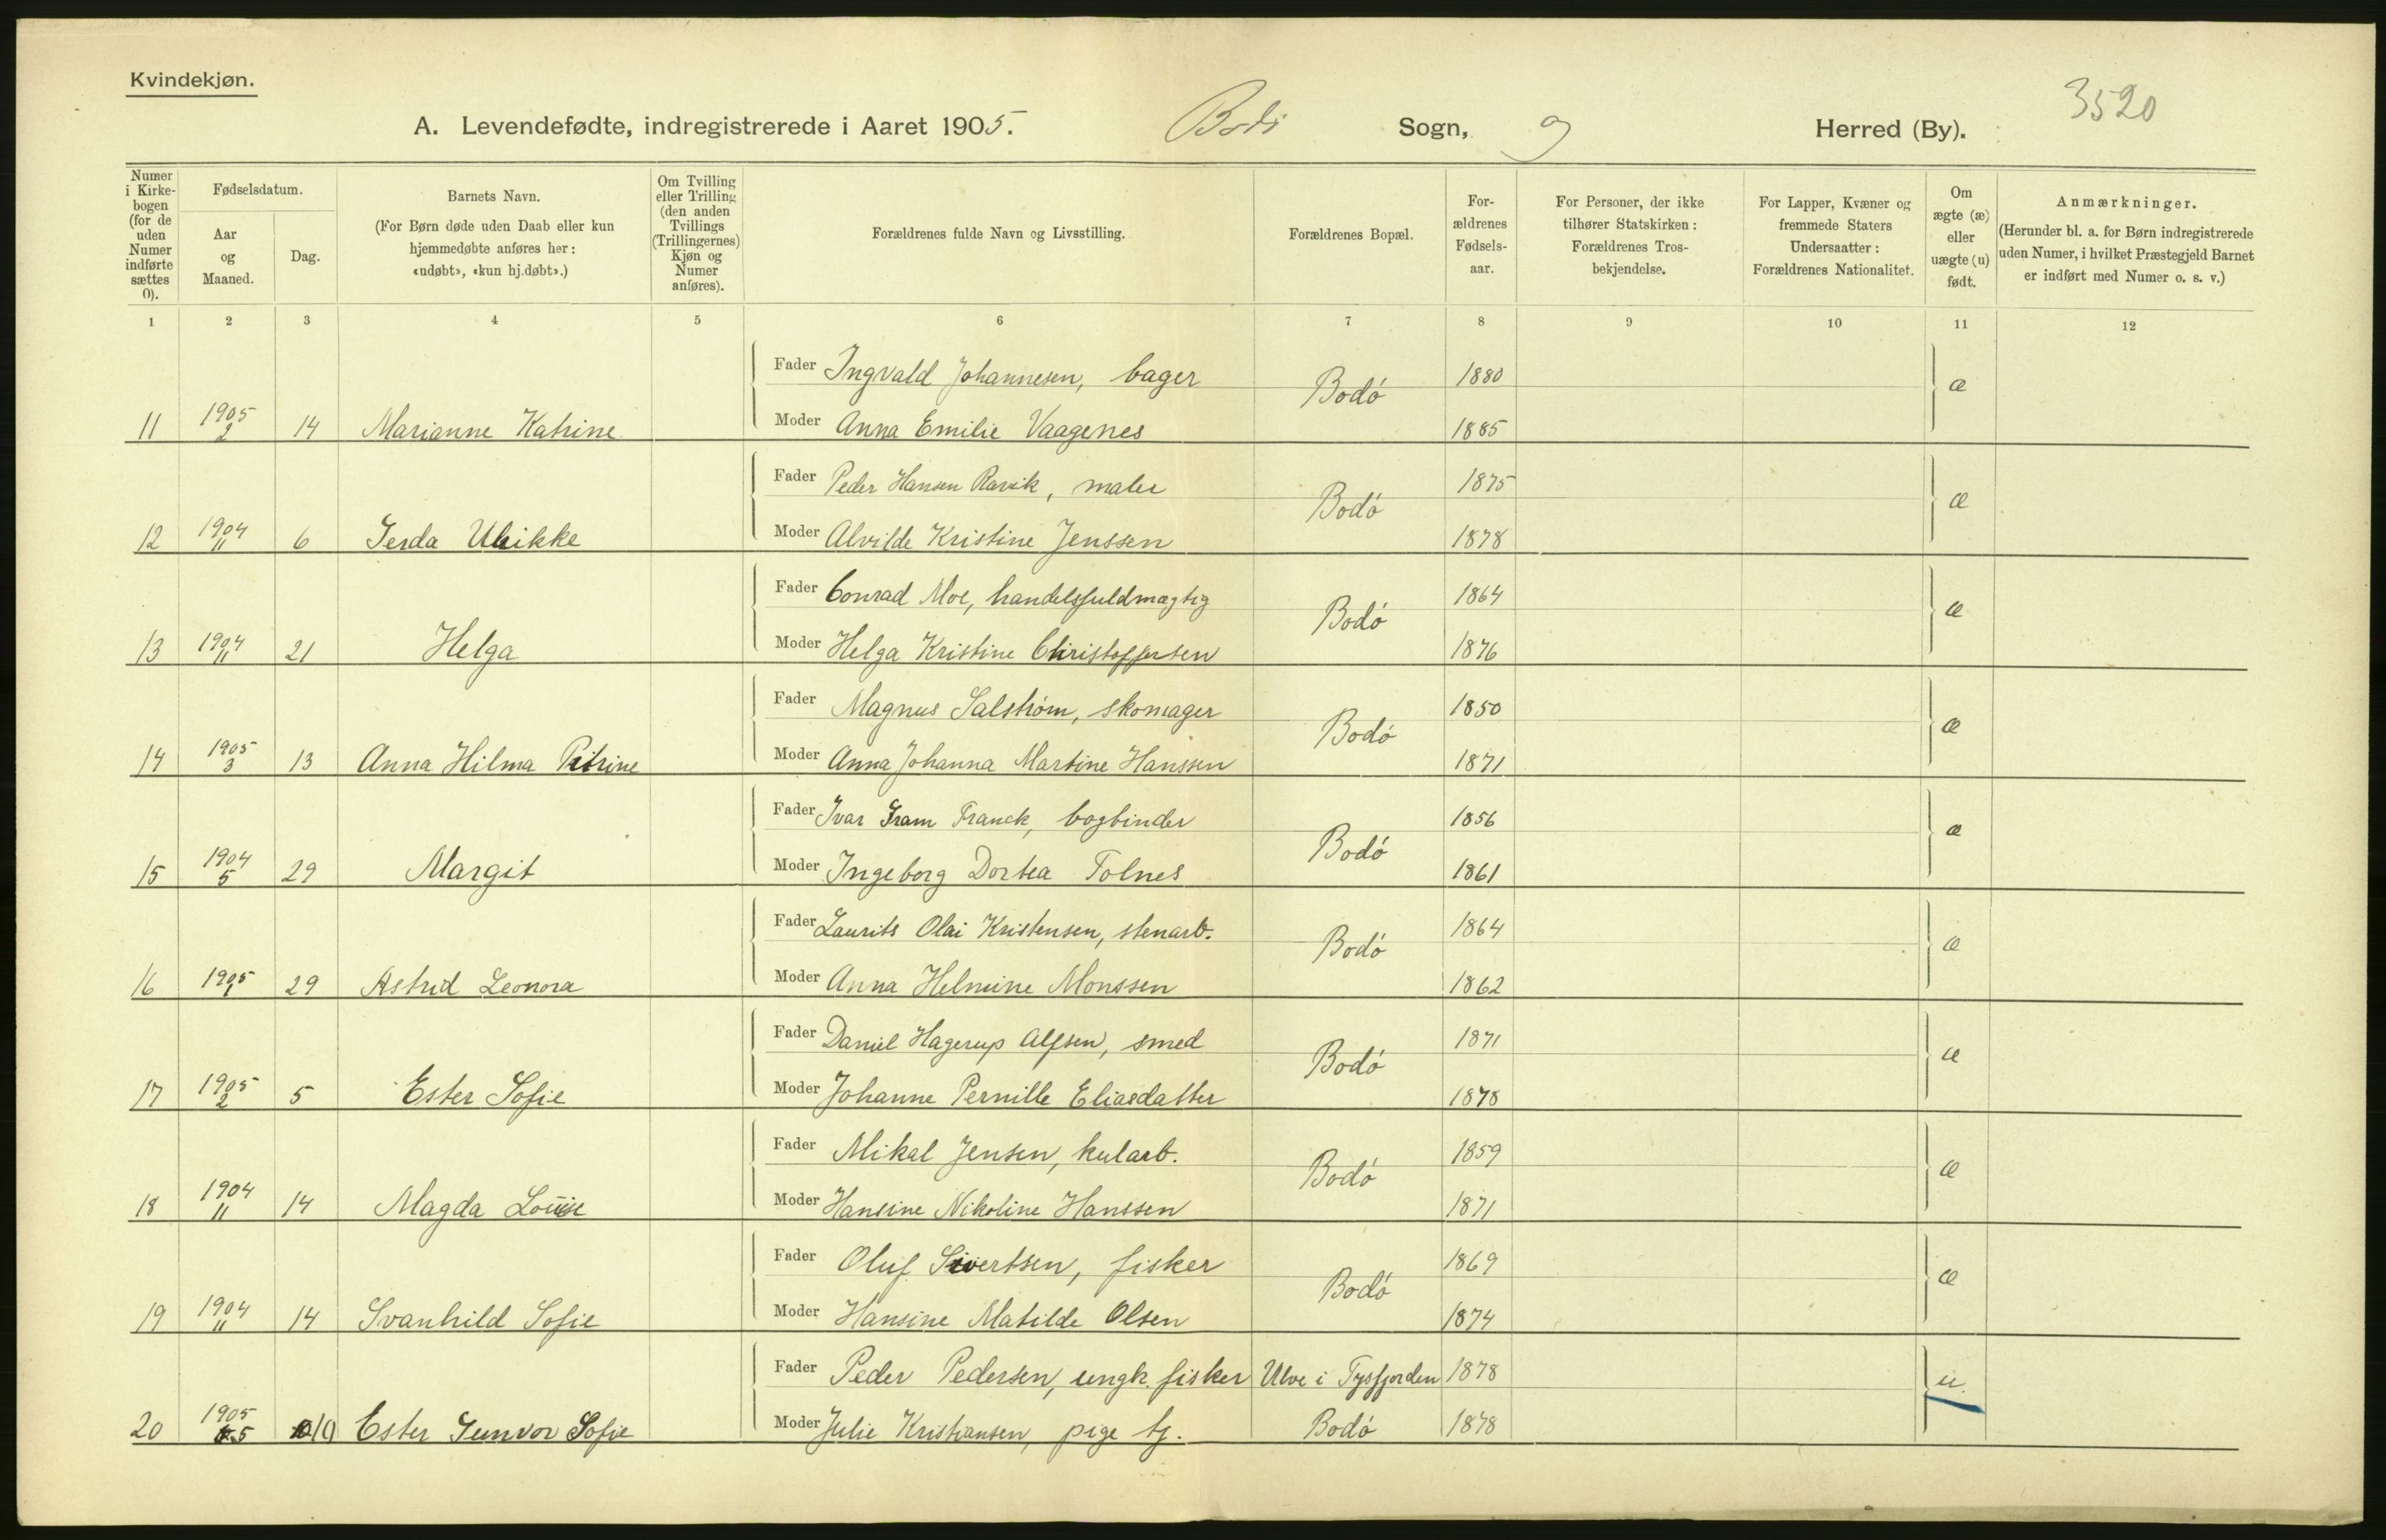 Kvindekjøn.
A. Levendefødte, indregistrerede i Aaret 1905. Bodø Sogn, og Herred (By). 3520
Numer i Kirkebogen (for de uden Numer indførte sættes 0).
Fødselsdatum.
Aar og Maaned.
Dag.
Barnets Navn.
(For Børn døde uden Daab eller kun hjemmedøbte anføres her: «udøbt», «kun hj.døbt».)
Om Tvilling eller Trilling (den anden Tvillings (Trillingernes) Kjøn og Numer anføres).
Forældrenes fulde Navn og Livsstilling.
Forældrenes Bopæl.
Forældrenes Fødselsaar.
For Personer, der ikke tilhører Statskirken: Forældrenes Trosbekjendelse.
For Lapper, Kvæner og fremmede Staters Undersaatter: Forældrenes Nationalitet.
Om ægte (æ) eller uægte (u) født.
Anmærkninger.
(Herunder bl. a. for Børn indregistrerede uden Numer, i hvilket Præstegjeld Barnet er indført med Numer o. s. v.)
1 2 3 4 5 6 7 8 9 10 11 12
Fader Ingvald Johannesen, bager Bodø 1880 æ
11 1905 2 14 Marianne Katrine Moder Anna Emilie Vaagenes 1885
Fader Peder Hansen Ravik, maler Bodø 1875 æ
12 1904 11 6 Gerda Ulrikke Moder Alvilde Kristine Jenssen 1878
Fader Conrad Moe, handelsfuldmægtig Bodø 1864 æ
13 1904 11 21 Helga Moder Helga Kristine Christoffersen 1876
Fader Magnus Salstrøm, skomager Bodø 1850 æ
14 1905 3 13 Anna Hilma Petrine Moder Anna Johanna Martine Hanssen 1871
Fader Ivar Gram Franck, bogbinder Bodø 1856 æ
15 1904 5 29 Margit Moder Ingeborg Dortea Tolnes 1861
Fader Laurits Olai Kristensen, stenarb. Bodø 1864 æ
16 1905 1 29 Astrid Leonora Moder Anna Helmine Monssen 1862
Fader Daniel Hagerup Alfsen, smed Bodø 1871 æ
17 1905 2 5 Ester Sofie Moder Johanne Pernille Eliasdatter 1878
Fader Mikal Jensen, kularb. Bodø 1859 æ
18 1904 11 14 Magda Louise Moder Hansine Nikoline Hanssen 1871
Fader Oluf Sivertsen, fisker Bodø 1869 æ
19 1904 11 14 Svanhild Sofie Moder Hansine Matilde Olsen 1874
Fader Peder Pedersen, ungk. fisker Ulve i Tysfjorden 1878 u.
20 1905 5 10 Ester Gunvor Sofie Moder Julie Kristiansen, pige tj. Bodø 1878